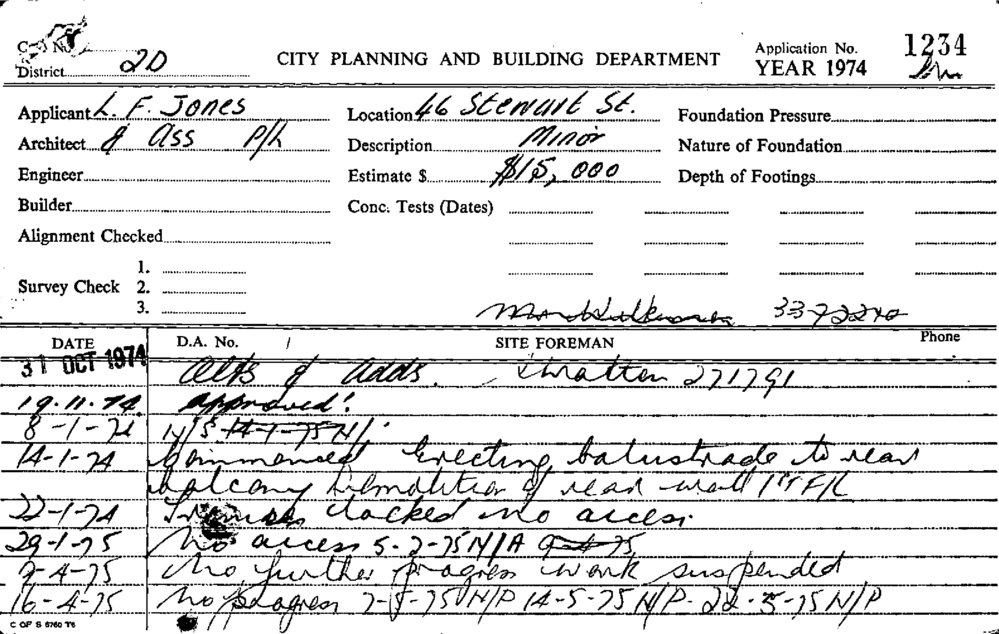 District 2D
CITY PLANNING AND BUILDING DEPARTMENT
Application No. 1234
YEAR 1974
Applicant L. F. Jones
Location 46 Stewart St.
Foundation Pressure
Architect & Ass P/L
Description Minor
Nature of Foundation
Engineer
Estimate $ $15,000
Depth of Footings
Builder
Conc. Tests (Dates)
Alignment Checked
Survey Check
1.
2.
3.
DATE D.A. No. SITE FOREMAN Phone
31 OCT 1974 Alts & Adds. Stratton 271791
19.11.74 approved!
8-1-74 N/S 14-1-75 N/
14-1-74 Commenced Erecting balustrade to rear
balcony Demolition of rear wall 1st F/L
22-1-74 locked no access.
29-1-75 No access 5-2-75 N/A 9-4-75
9-4-75 No further progress work suspended
16-4-75 No progress 7-5-75 N/P 14-5-75 N/P. 22-5-75 N/P
C OF S 6760 T6